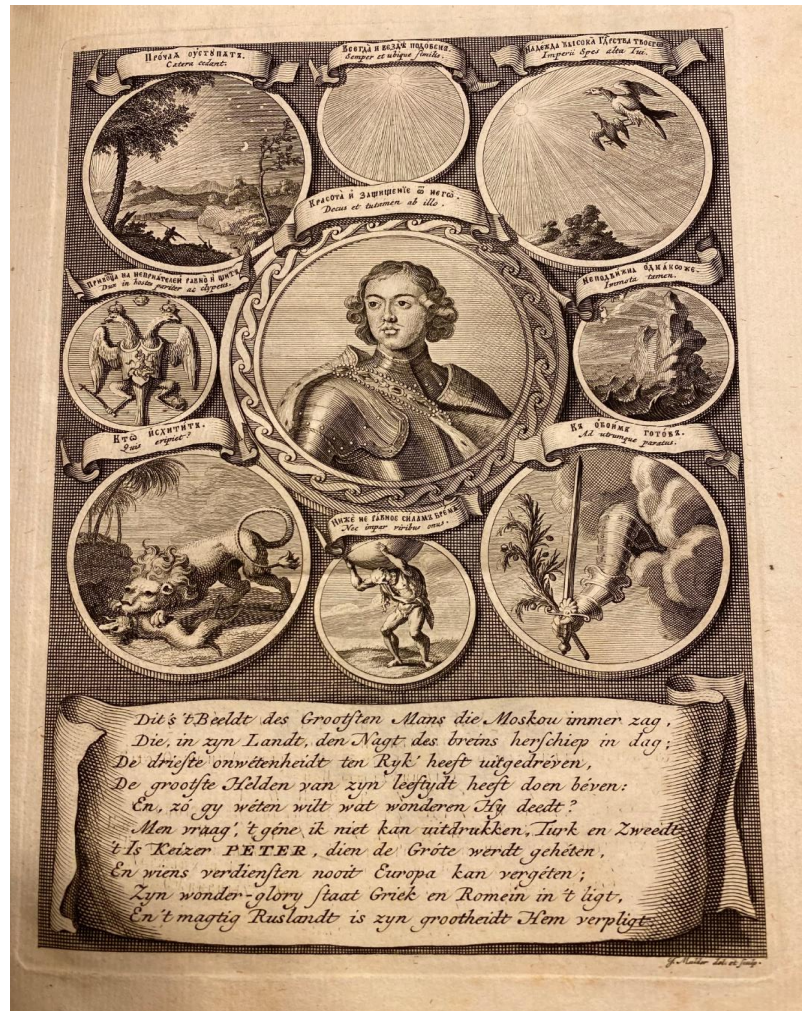 ПРОЧАѦ ОУСТꙊПАТЪ.
Cætera cedant.
ВСЕГДА И ВЕЗДѢ ПОДОБЕНЪ.
Semper et ubique ſimilis.
НАДЕЖДА ВЫСОКА ГДРСТВА ТВОЕГѠ
Imperii Spes alta Tui.
КРАСОТА̀ И҆ ЗАЩИЩЕНЇЕ Ѿ НЕГѠ̀.
Decus et tutamen ab illo.
НА НЕПРИАТЕЛЕЙ РАВНО И ЩИТЪ
Dux in hostes pariter ac clypeus.
НЕПОДВИЖНА ОДНАКОЖЕ.
Immota tamen.
КТѠ И҆СХИТИТЪ.
Quis eripiet?
КЪ ОБОИМЪ ГОТОВЪ.
Ad utrumque paratus.
НИЖЕ НЕ РАВНОЕ СИЛАМЪ БРЕМѦ
Nec impar viribus onus.
Dit's 't Beeldt des Grootſten Mans die Moskou immer zag,
Die, in zyn Landt, den Nagt des breins herſchiep in dag;
De drieſte onwétenheidt ten Ryk' heeft uitgedréven,
De grootſte Helden van zyn leeftydt heeft doen béven:
En, zó gy wéten wilt wat wonderen Hy deedt?
Men vraag', 't géne ik niet kan uitdrukken, Turk en Zweedt
't Is Keizer PETER, dien de Gróte werdt gehéten,
En wiens verdienſten nooit Europa kan vergéten;
Zyn wonder-glory ſtaat Griek en Romein in 't ligt,
En 't magtig Ruslandt is zyn grootheidt Hem verpligt
del. et ſculp.